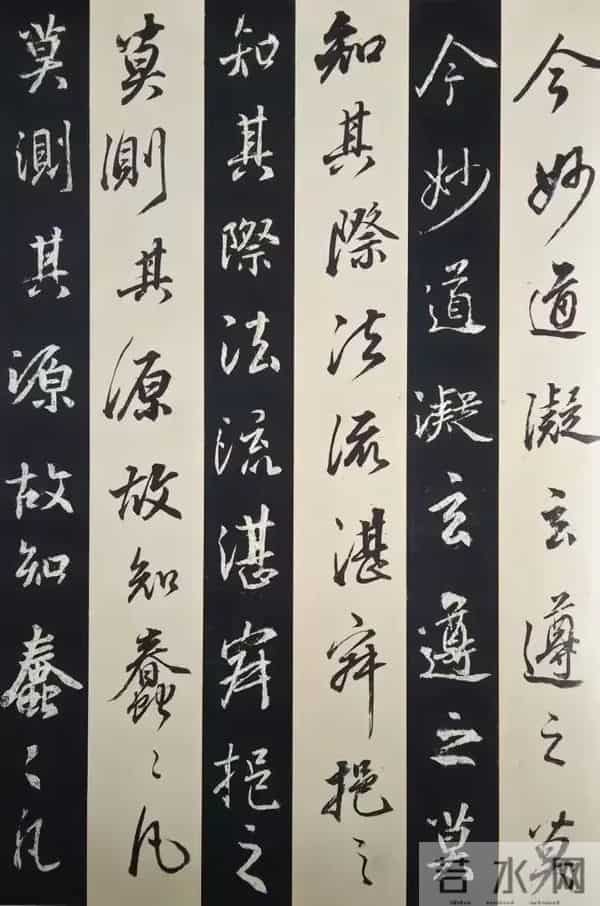 今妙道凝玄遵之莫
今妙道凝玄遵之莫
知其際法流湛寂挹之
知其際法流湛寂挹之
莫測其源故知蠢〻凡
莫測其源故知蠢〻凡
若水网